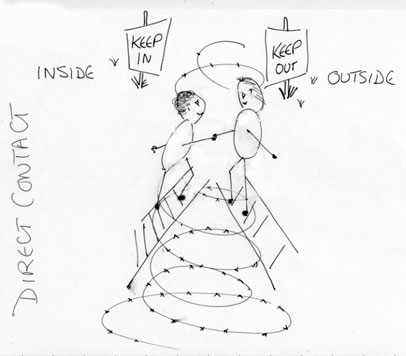 KEEP
IN
KEEP
OUT
INSIDE
OUTSIDE
DIRECT CONTACT